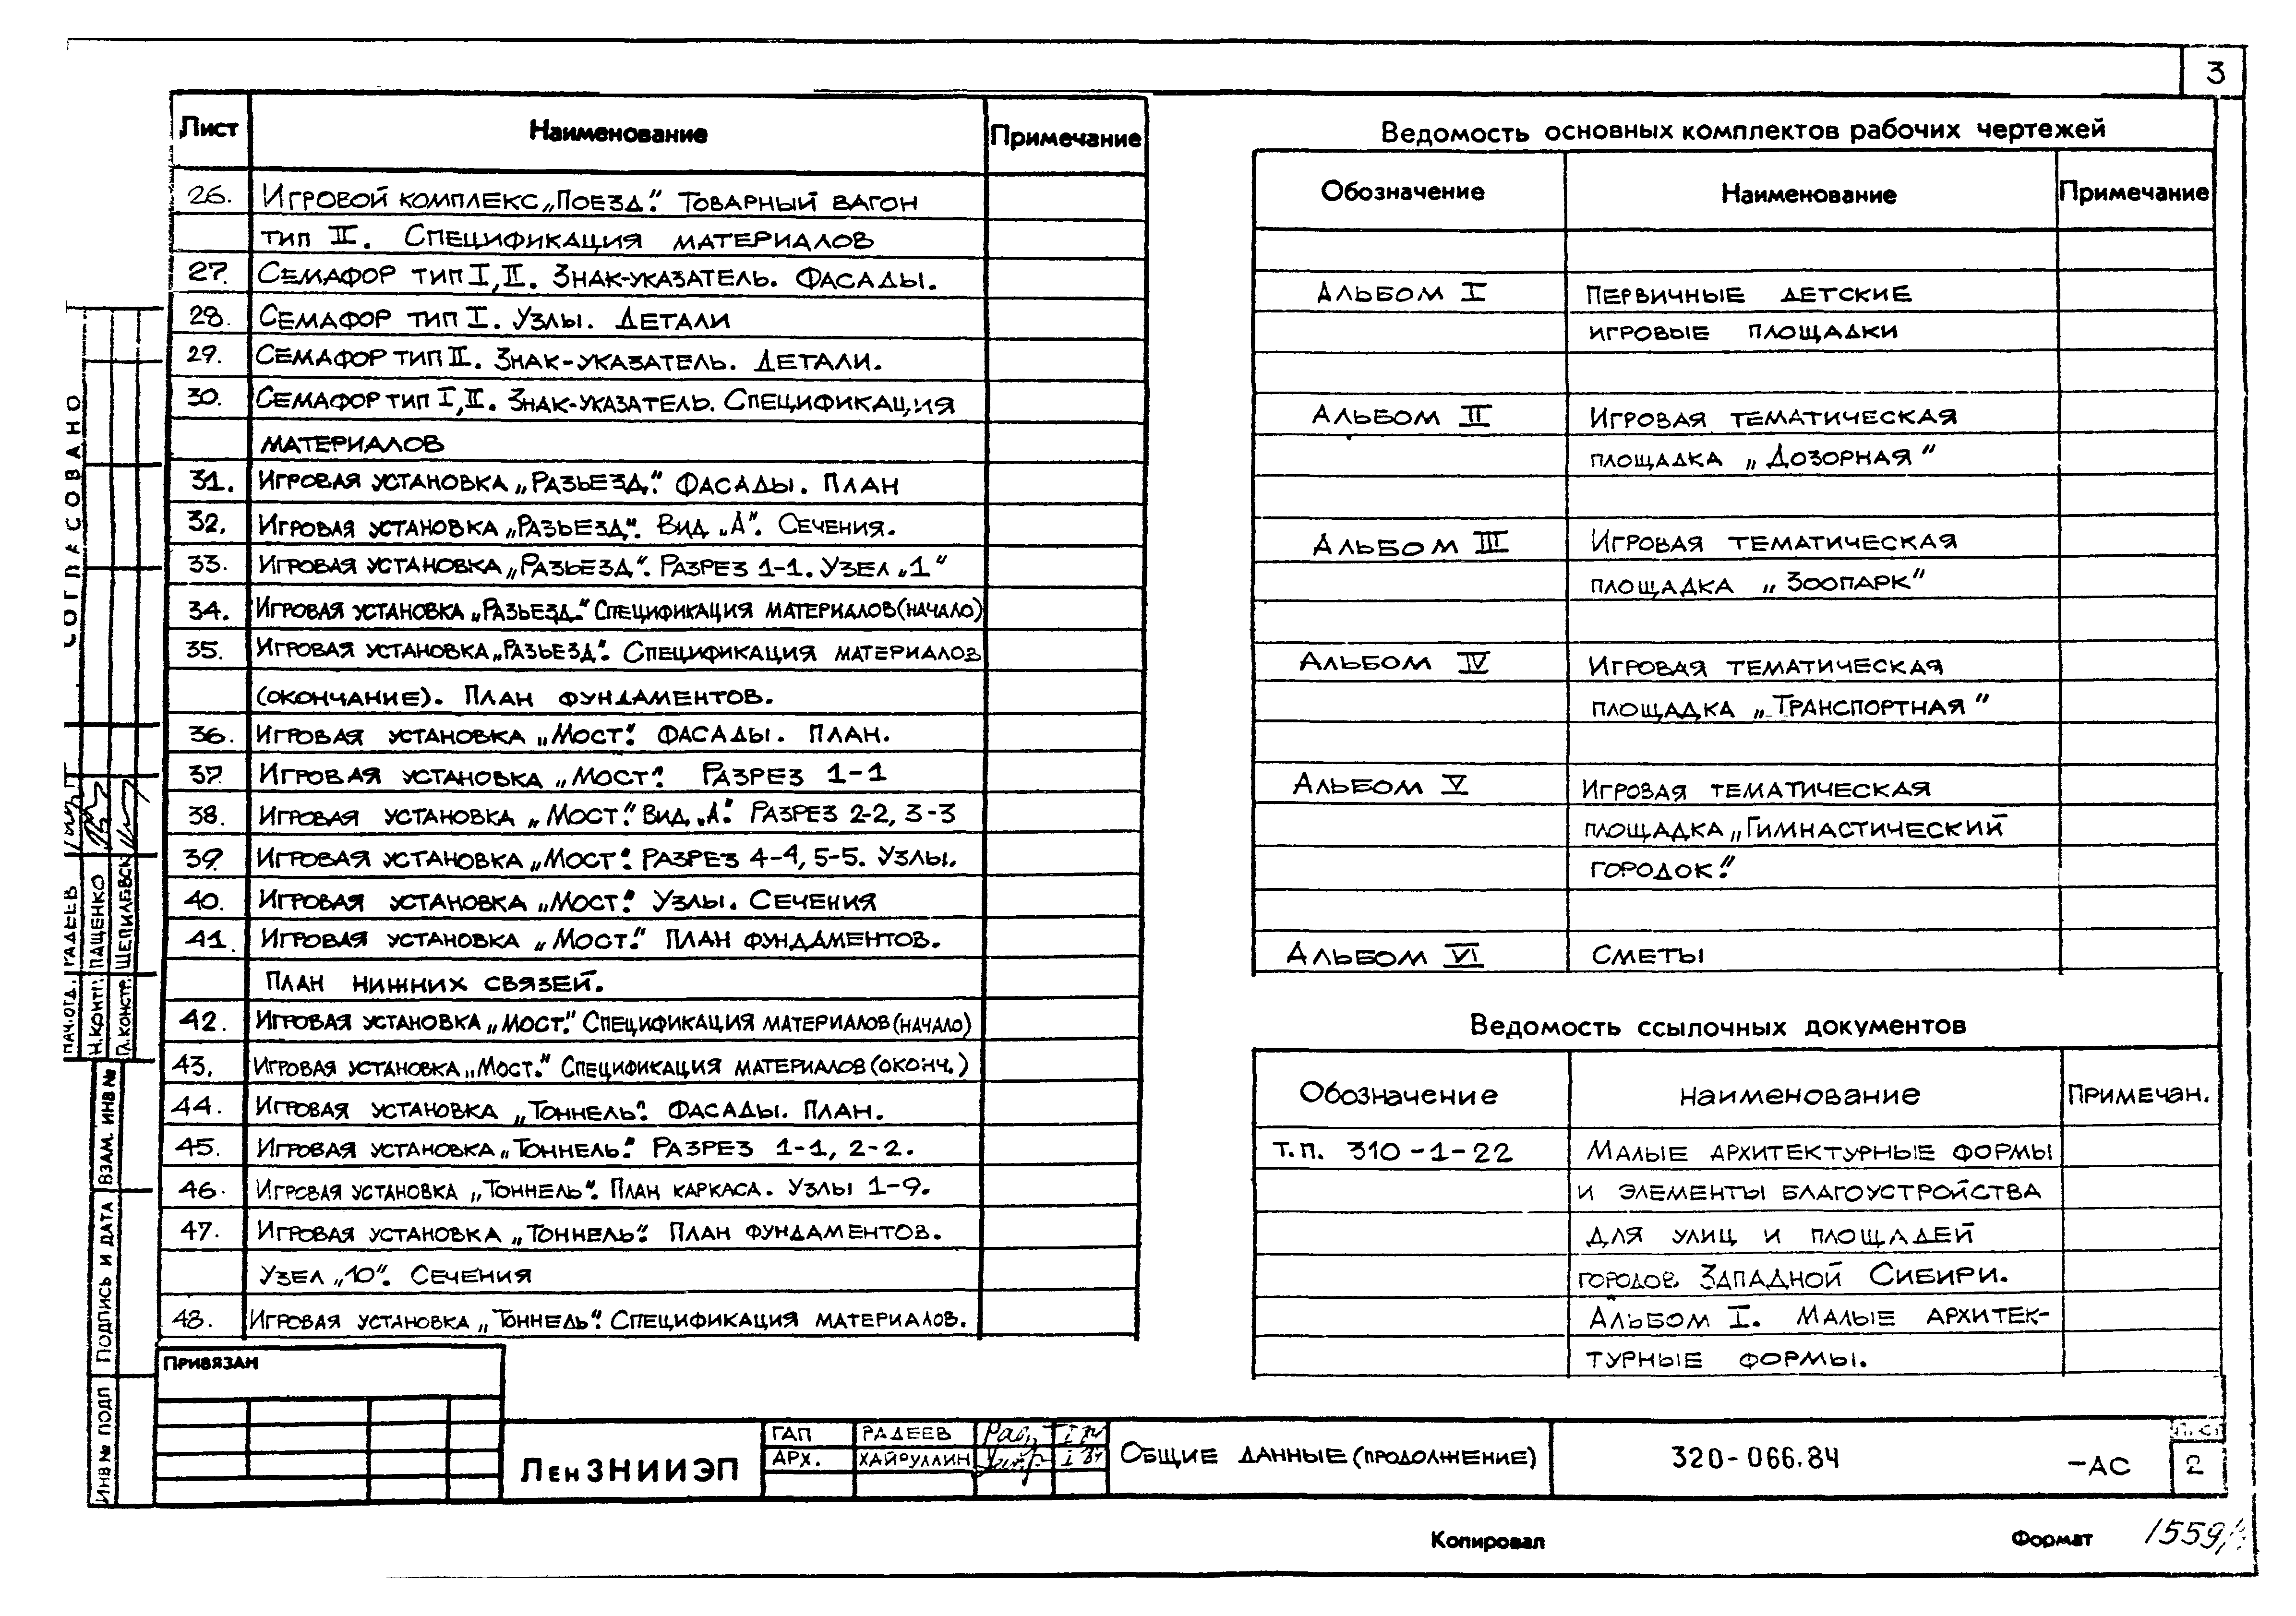 3
Лист Наименование Примечание
26. Игровой комплекс „Поезд“. Товарный вагон
тип II. Спецификация материалов
27. Семафор тип I, II. Знак-указатель. Фасады.
28. Семафор тип I. Узлы. Детали
29. Семафор тип II. Знак-указатель. Детали.
30. Семафор тип I, II. Знак-указатель. Спецификация
материалов
31. Игровая установка „Разьезд“. Фасады. План
32. Игровая установка „Разьезд“. Вид „А“. Сечения.
33. Игровая установка „Разьезд“. Разрез 1-1. Узел „1“
34. Игровая установка „Разьезд“. Спецификация материалов (начало)
35. Игровая установка „Разьезд“. Спецификация материалов
(окончание). План фундаментов.
36. Игровая установка „Мост“. Фасады. План.
37. Игровая установка „Мост“. Разрез 1-1
38. Игровая установка „Мост“. Вид „А“. Разрез 2-2, 3-3
39. Игровая установка „Мост“. Разрез 4-4, 5-5. Узлы.
40. Игровая установка „Мост“. Узлы. Сечения
41. Игровая установка „Мост“. План фундаментов.
План нижних связей.
42. Игровая установка „Мост“. Спецификация материалов (начало)
43. Игровая установка „Мост“. Спецификация материалов (оконч.)
44. Игровая установка „Тоннель“. Фасады. План.
45. Игровая установка „Тоннель“. Разрез 1-1, 2-2.
46. Игровая установка „Тоннель“. План каркаса. Узлы 1-9.
47. Игровая установка „Тоннель“. План фундаментов.
Узел „10“. Сечения
48. Игровая установка „Тоннель“. Спецификация материалов.
Ведомость основных комплектов рабочих чертежей
Обозначение Наименование Примечание
Альбом I Первичные детские
игровые площадки
Альбом II Игровая тематическая
площадка „Дозорная“
Альбом III Игровая тематическая
площадка „Зоопарк“
Альбом IV Игровая тематическая
площадка „Транспортная“
Альбом V Игровая тематическая
площадка „Гимнастический
городок“.
Альбом VI Сметы
Ведомость ссылочных документов
Обозначение Наименование Примечан.
т.п. 310-1-22 Малые архитектурные формы
и элементы благоустройства
для улиц и площадей
городов Западной Сибири.
Альбом I. Малые архитек-
турные формы.
СОГЛАСОВАНО
Нач. отд. Радеев
Н.контр. Пащенко
Гл.констр. Щепилевск
Взам. инв №
Подпись и дата
Инв № подл
Привязан
ЛенЗНИИЭП
ГАП Радеев
Арх. Хайруллин
Общие данные (продолжение)
320-066.84 -АС
Лист
2
Копировал Формат